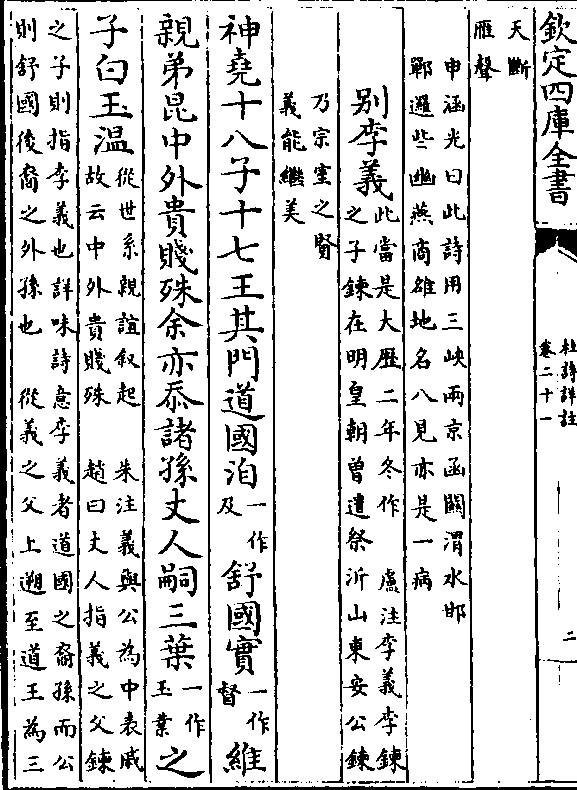 欽定四庫全書
杜詩詳註
卷二十一
二
天斷
雁聲
申涵光曰此詩用三峽兩京函關渭水邯
鄲邏些幽燕商雒地名八見亦是一病
別李義
此當是大厯二年冬作　盧注李義李鍊
之子鍊在明皇朝曾遣祭沂山東安公鍊
乃宗室之賢
義能繼美
神堯十八子十七王其門道國洎一作及舒國實一作督維
親弟昆中外貴賤殊余亦忝諸孫丈人嗣三葉一作玉葉之
子白玉溫
從世系親誼叙起　朱注義與公為中表戚
故云中外貴賤殊　趙曰丈人指義之父鍊
之子則指李義也詳味詩意李義者道國之裔孫而公
則舒國後裔之外孫也　從義之父上遡至道王為三